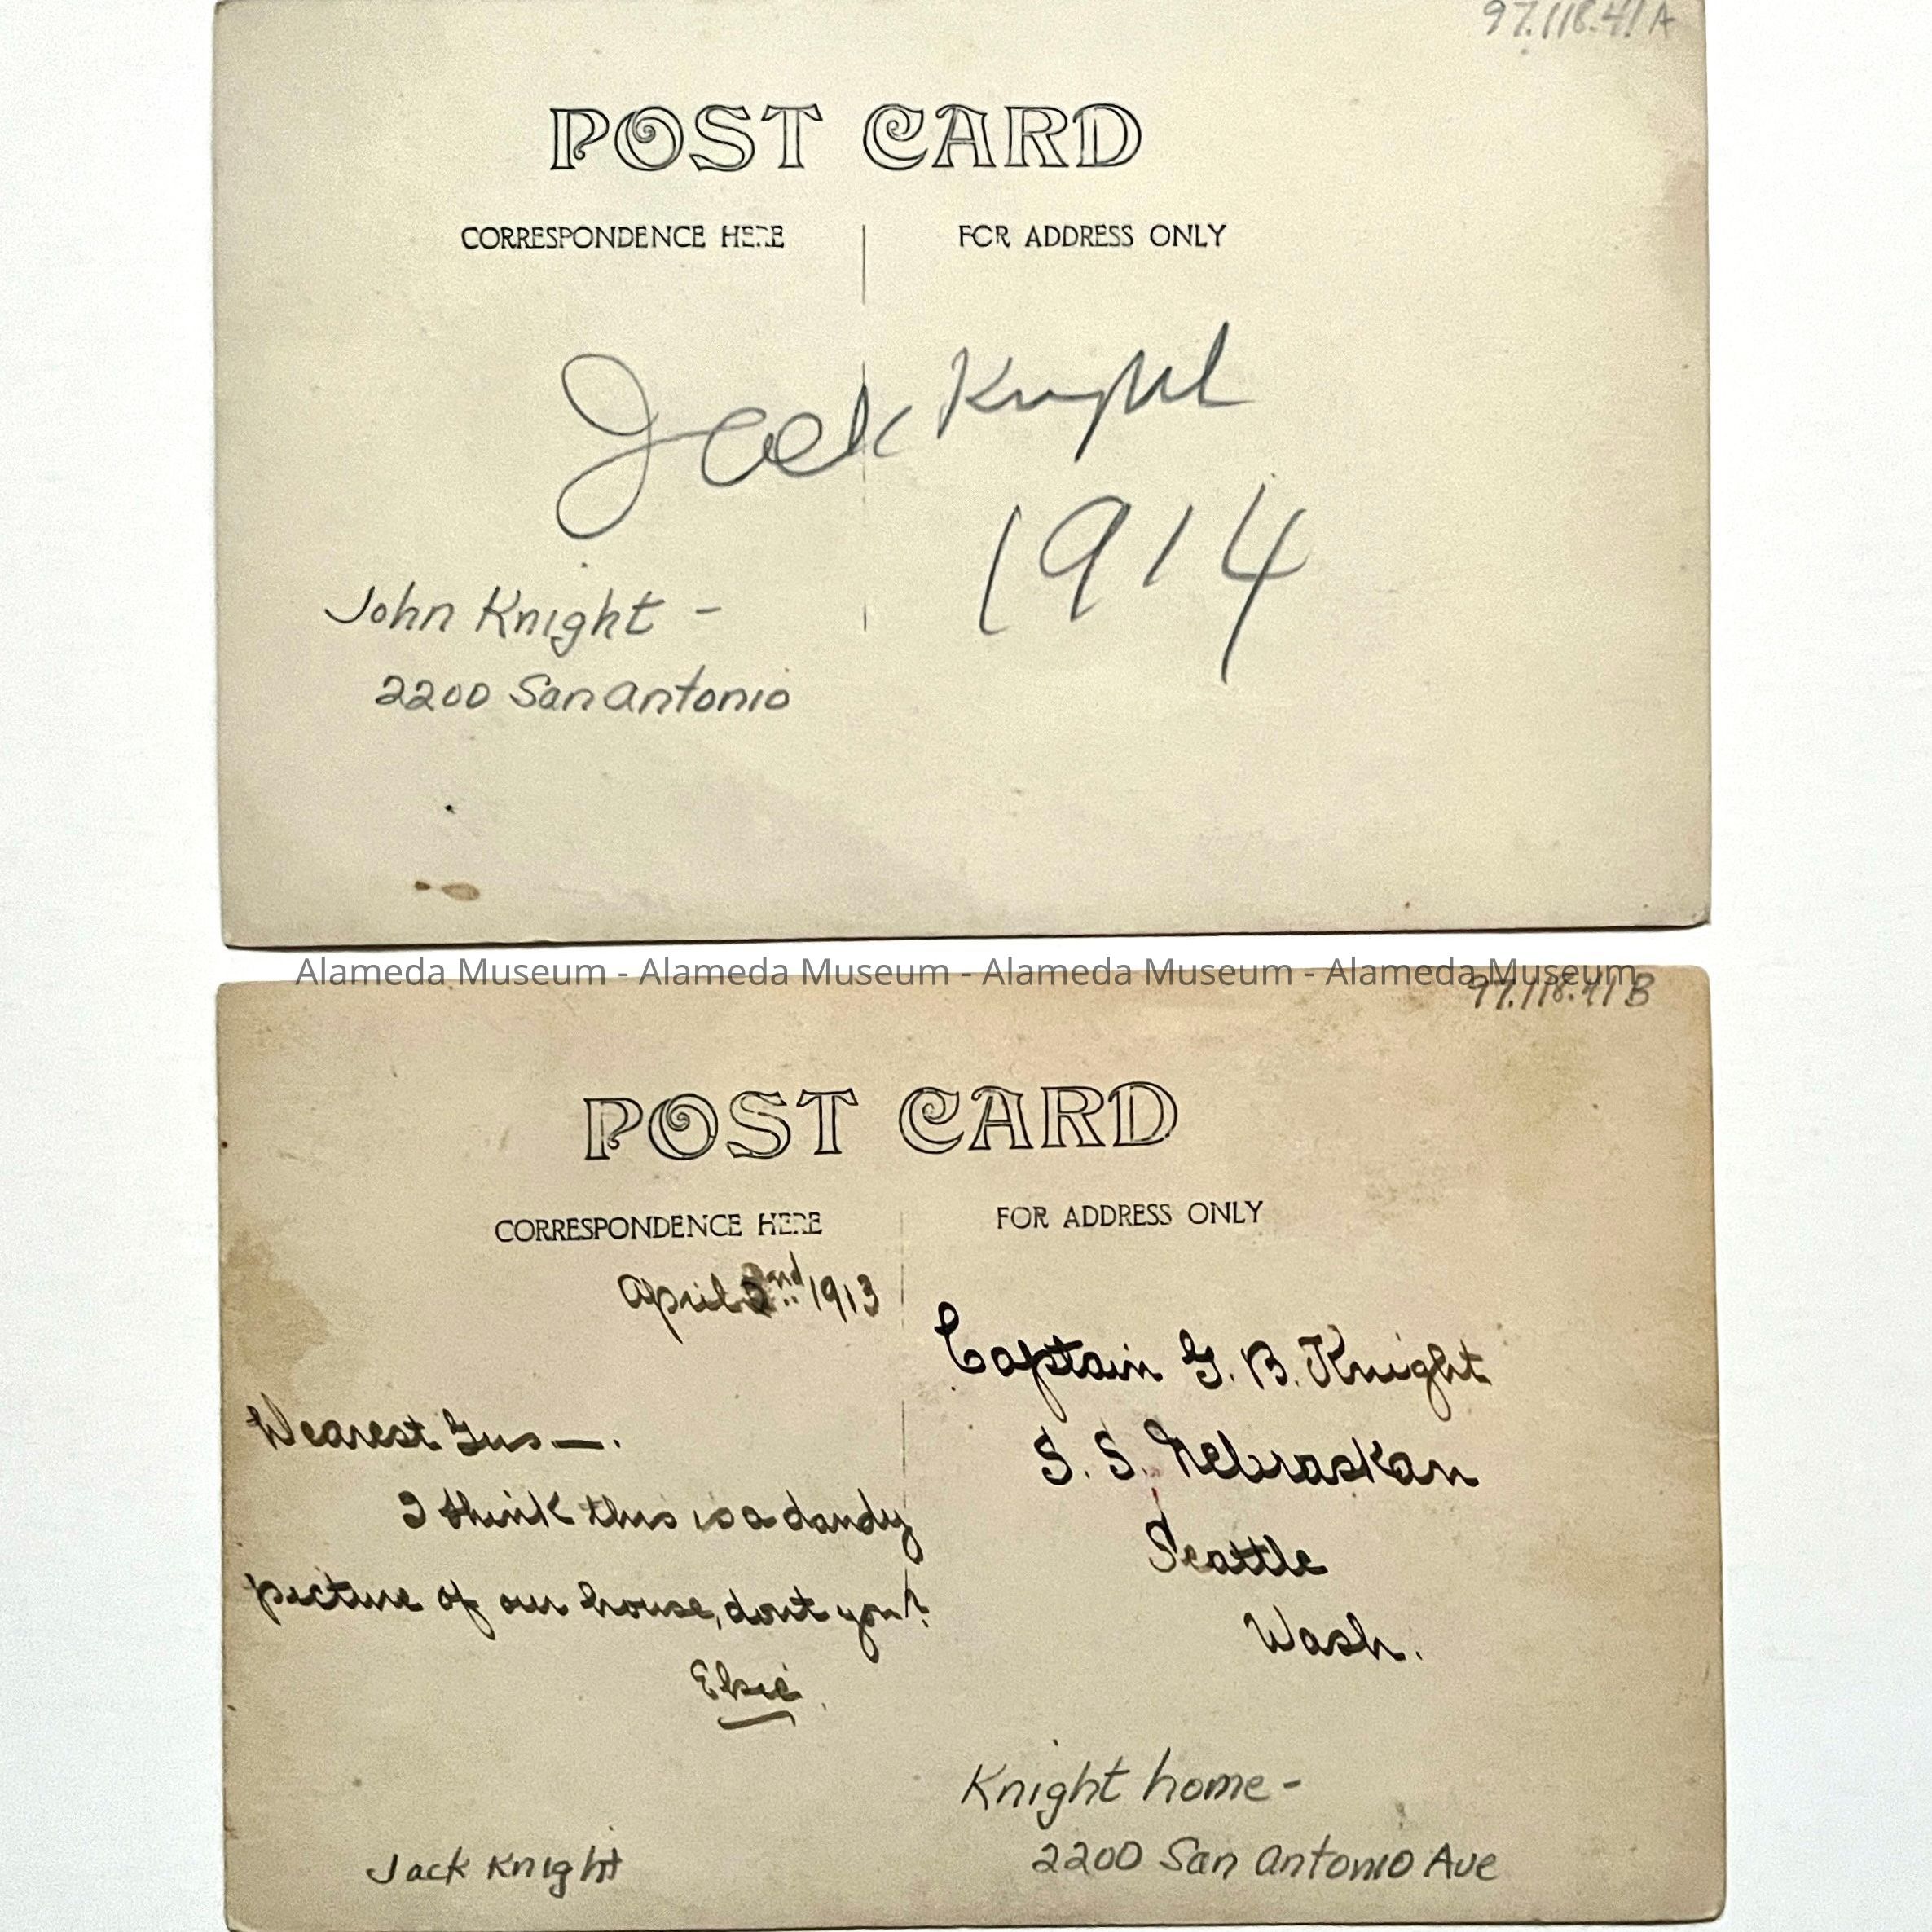 97.118.41A
POST CARD
CORRESPONDENCE HERE
FOR ADDRESS ONLY
Jack Knight
1914
John Knight -
2200 San Antonio
Alameda Museum - Alameda Museum - Alameda Museum - Alameda Museum
97.118.41B
POST CARD
CORRESPONDENCE HERE
FOR ADDRESS ONLY
April 2nd 1913
Dearest Gus—.
I think this is a dandy
picture of our house, don't you?
Elsie.
Captain G. B. Knight
S. S. Nebraskan
Seattle
Wash.
Knight home -
2200 San Antonio Ave
Jack Knight